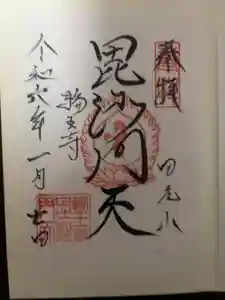 奉拝
日光山
毘沙門天
輪王寺
令和六年一月七日